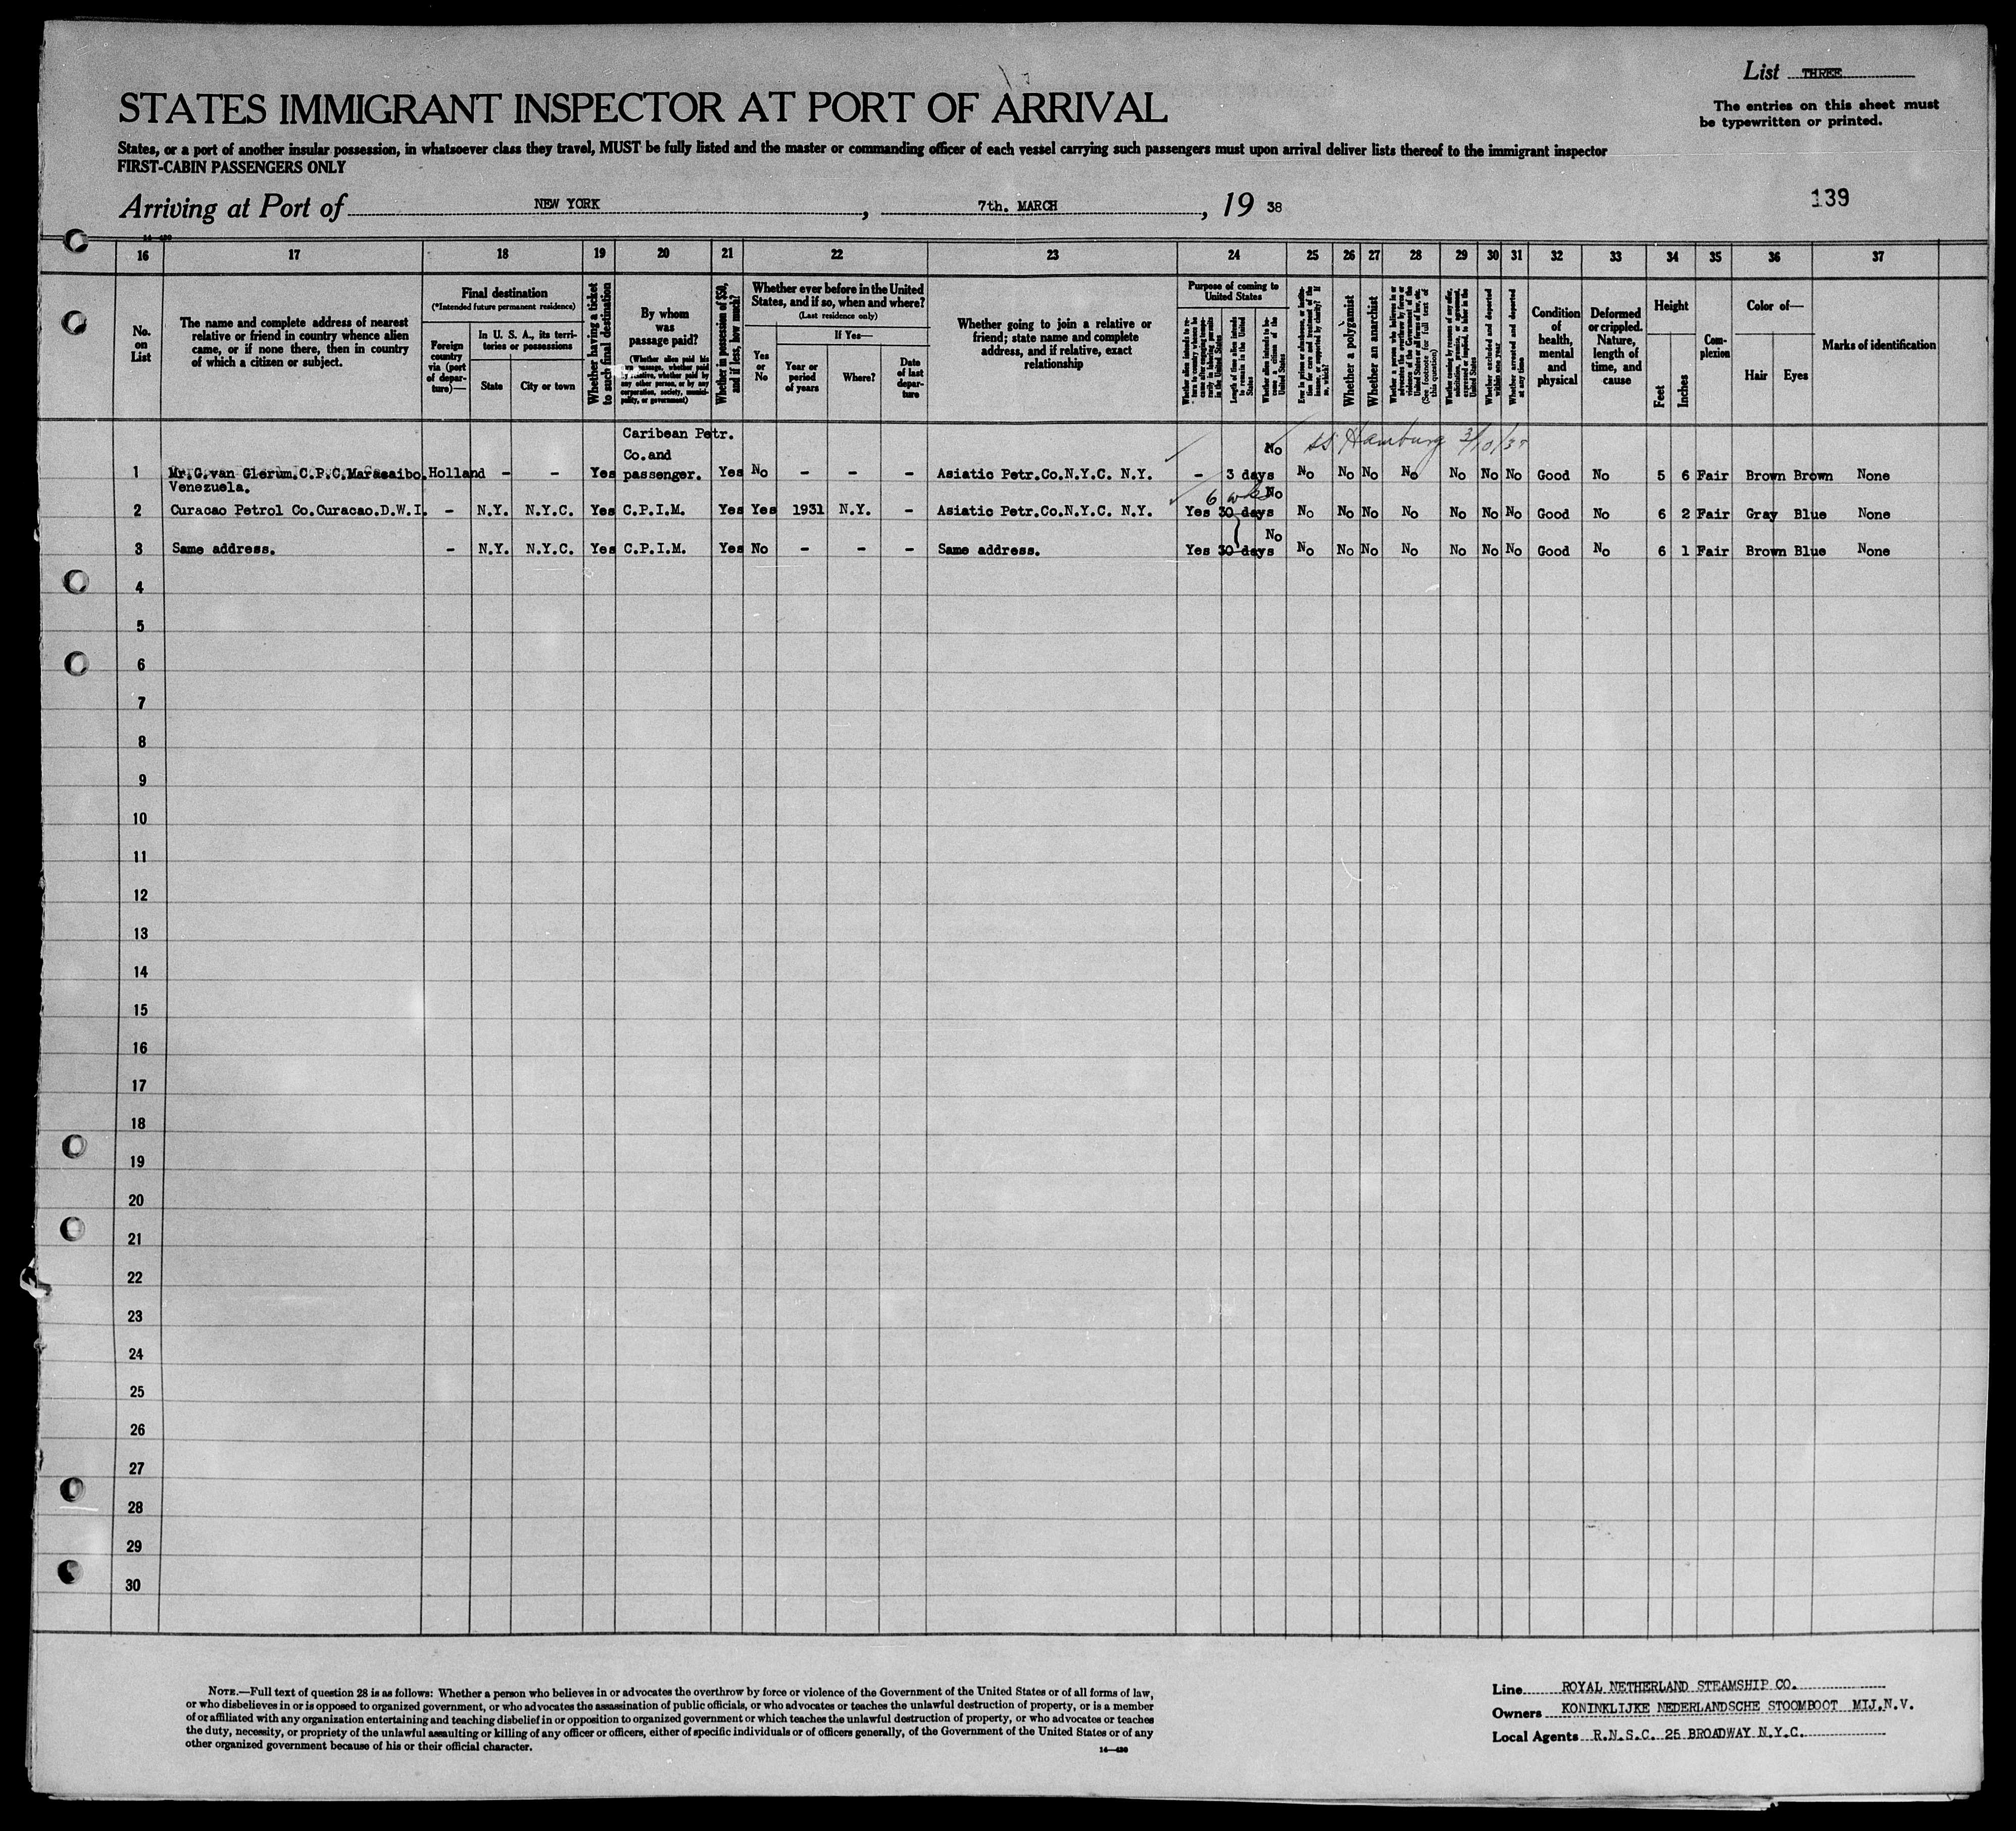 List THREE
The entries on this sheet must
be typewritten or printed.
STATES IMMIGRANT INSPECTOR AT PORT OF ARRIVAL
States, or a port of another insular possession, in whatsoever class they travel, MUST be fully listed and the master or commanding officer of each vessel carrying such passengers must upon arrival deliver lists thereof to the immigrant inspector
FIRST-CABIN PASSENGERS ONLY
Arriving at Port of NEW YORK, 7th. MARCH, 19 38
139
16 17 18 19 20 21 22 23 24 25 26 27 28 29 30 31 32 33 34 35 36 37
No.
on
List
The name and complete address of nearest
relative or friend in country whence alien
came, or if none there, then in country
of which a citizen or subject.
Final destination
(*Intended future permanent residence)
Foreign
country
via (port
of depar-
ture)—
In U. S. A., its terri-
tories or possessions
State
City or town
Whether having a ticket
to such final destination
By whom
was
passage paid?
Whether in possession of $50,
and if less, how much?
Whether ever before in the United
States, and if so, when and where?
(Last residence only)
Yes
or
No
If Yes—
Year or
period
of years
Where?
Date
of last
depar-
ture
Whether going to join a relative or
friend; state name and complete
address, and if relative, exact
relationship
Purpose of coming to
United States
Length of time alien intends
to remain in the United
States
Whether alien intends to be-
come a citizen of the
United States
Whether a polygamist
Whether an anarchist
(See footnote for full text of
this question)
Whether excluded and deported
within one year
Whether arrested and deported
at any time
Condition
of
health,
mental
and
physical
Deformed
or crippled.
Nature,
length of
time, and
cause
Height
Feet
Inches
Com-
plexion
Color of—
Hair
Eyes
Marks of identification
Caribean Petr.
Co.and
No SS Hamburg 3/10/38
1 Mr.G.van Glerum.C.P.C.Maracaibo. Holland - - Yes passenger. Yes No - - - Asiatic Petr.Co.N.Y.C. N.Y. - 3 days No No No No No No No Good No 5 6 Fair Brown Brown None
Venezuela.
6 wks No
2 Curacao Petrol Co.Curacao.D.W.I. - N.Y. N.Y.C. Yes C.P.I.M. Yes Yes 1931 N.Y. - Asiatic Petr.Co.N.Y.C. N.Y. Yes 30 days No No No No No No No Good No 6 2 Fair Gray Blue None
No
3 Same address. - N.Y. N.Y.C. Yes C.P.I.M. Yes No - - - Same address. Yes 30 days No No No No No No No Good No 6 1 Fair Brown Blue None
4
5
6
7
8
9
10
11
12
13
14
15
16
17
18
19
20
21
22
23
24
25
26
27
28
29
30
NOTE.—Full text of question 28 is as follows: Whether a person who believes in or advocates the overthrow by force or violence of the Government of the United States or of all forms of law,
or who disbelieves in or is opposed to organized government, or who advocates the assassination of public officials, or who advocates or teaches the unlawful destruction of property, or is a member
of or affiliated with any organization entertaining and teaching disbelief in or opposition to organized government or which teaches the unlawful destruction of property, or who advocates or teaches
the duty, necessity, or propriety of the unlawful assaulting or killing of any officer or officers, either of specific individuals or of officers generally, of the Government of the United States or of any
other organized government because of his or their official character.
14—430
Line ROYAL NETHERLAND STEAMSHIP CO.
Owners KONINKLIJKE NEDERLANDSCHE STOOMBOOT MIJ.N.V.
Local Agents R.N.S.C. 25 BROADWAY N.Y.C.